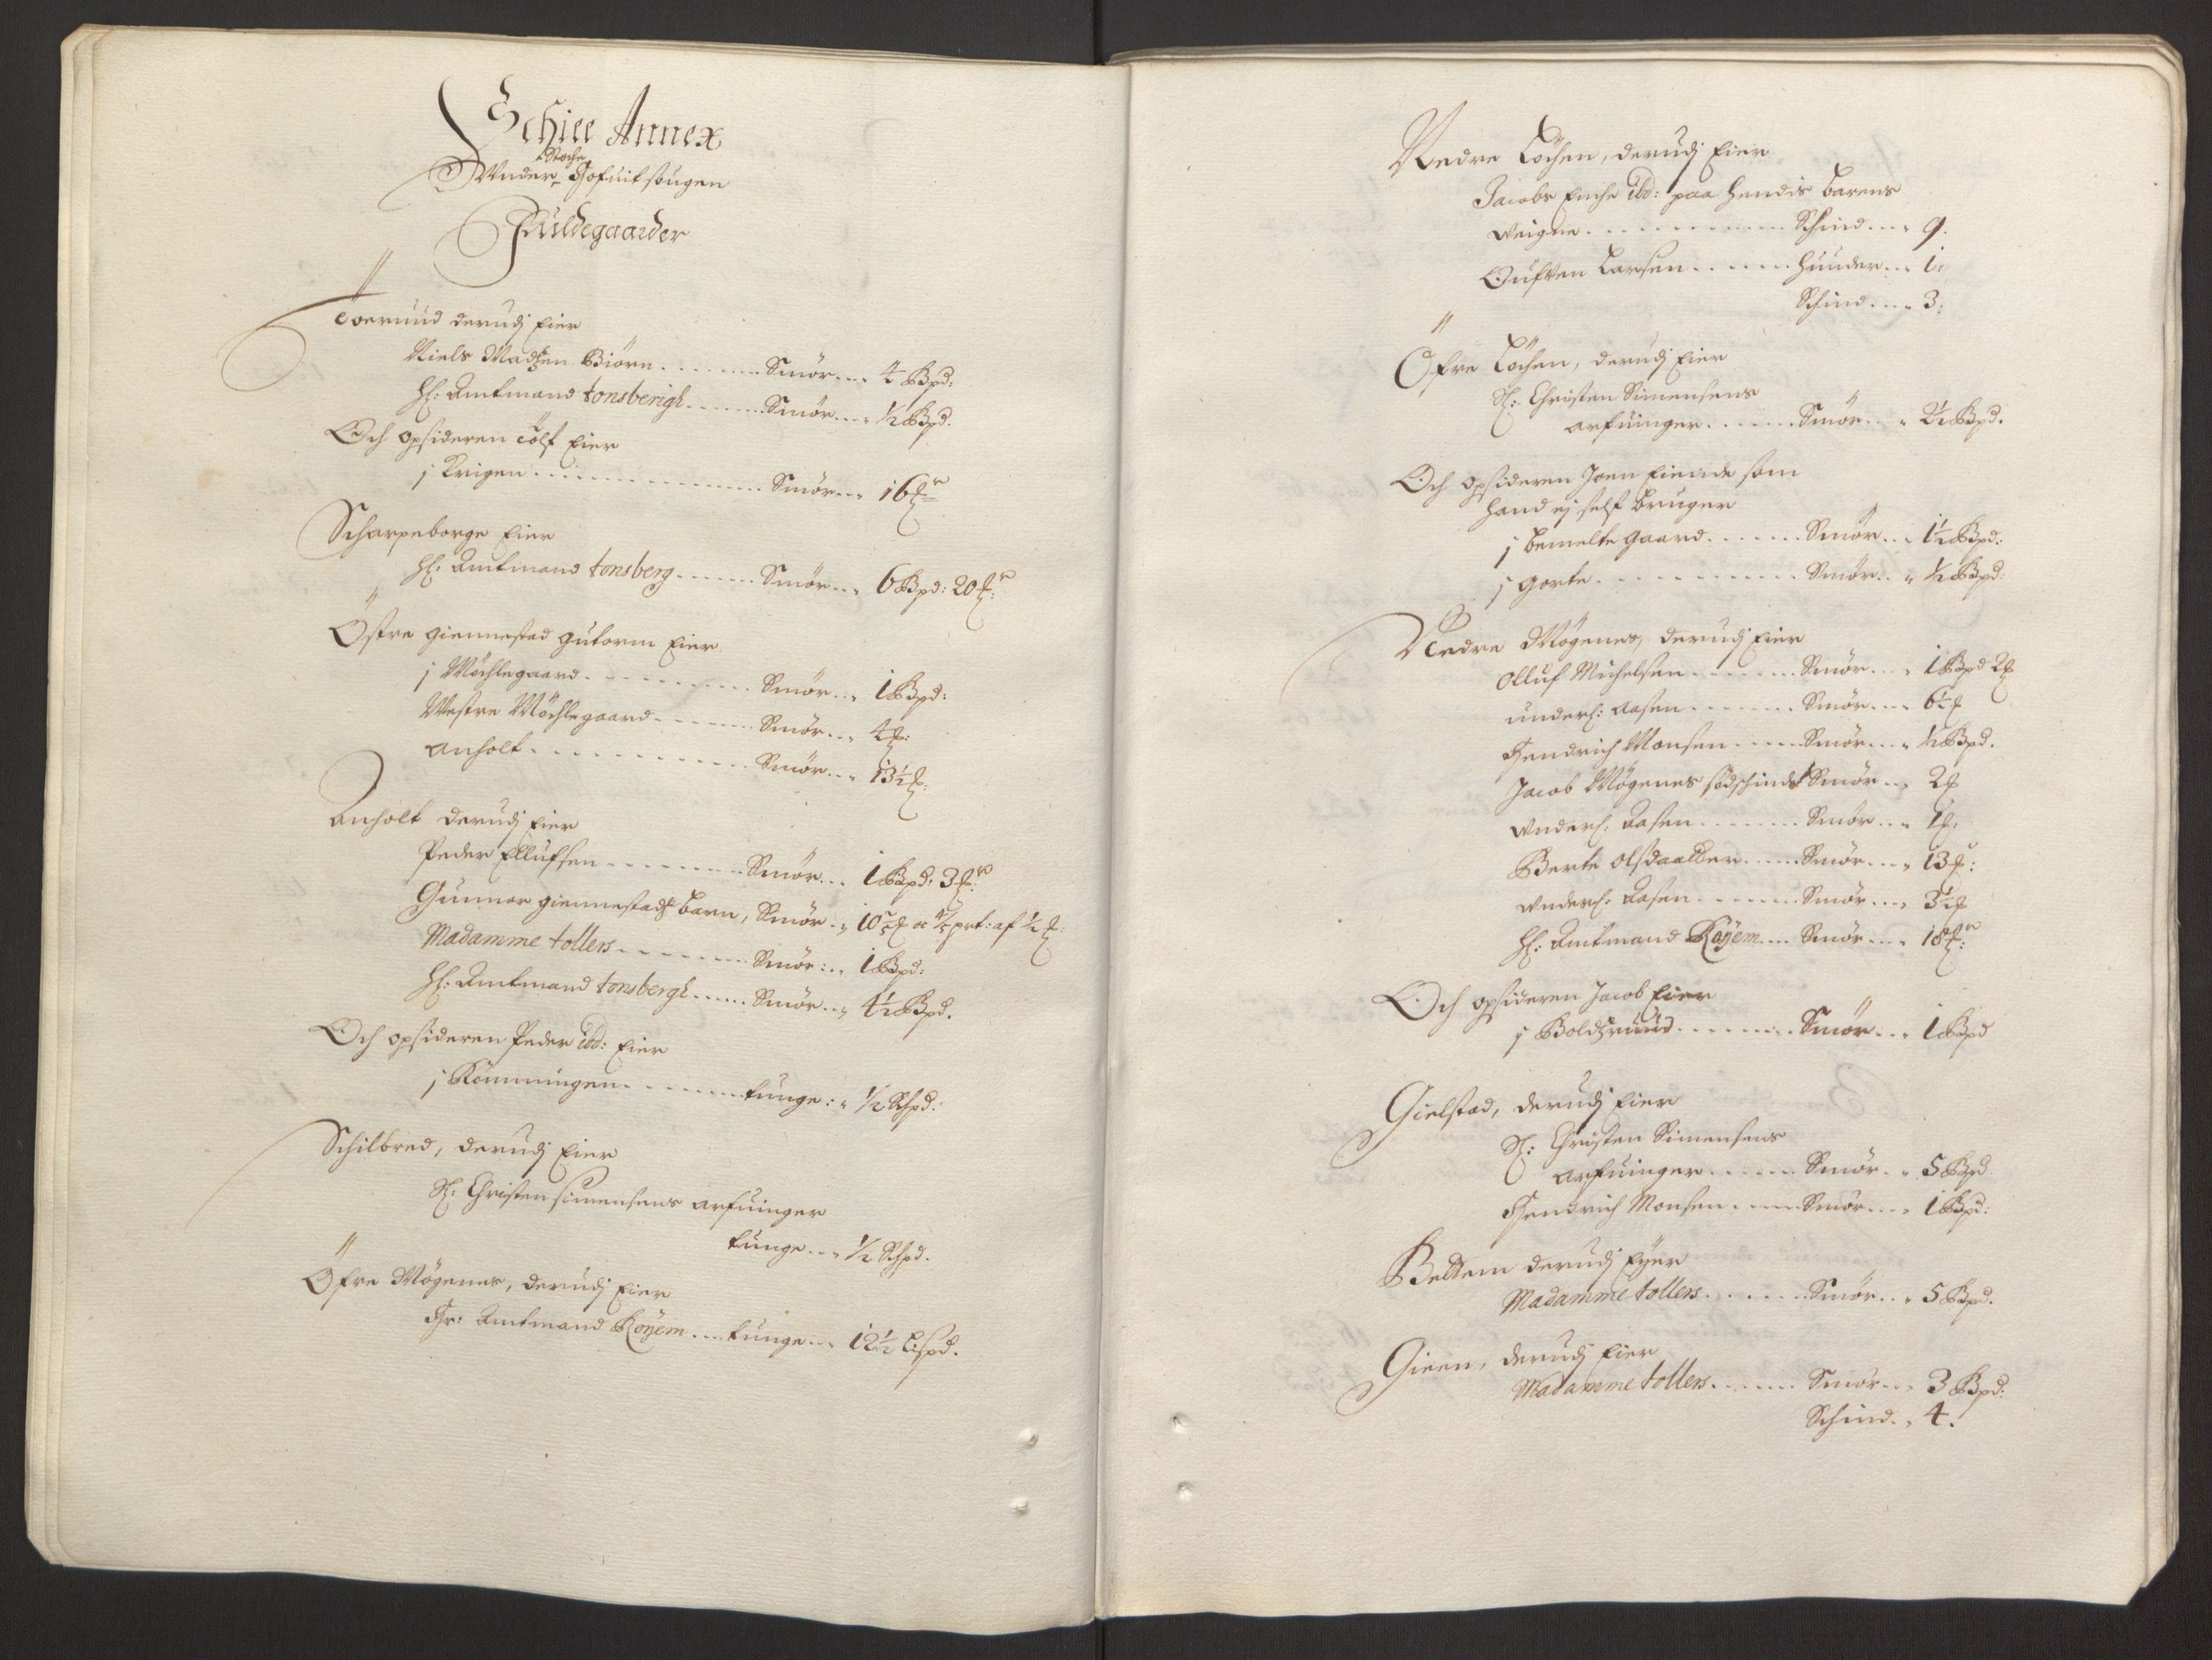 Schiee Annex
Stoche
Wnder Hofuitsougen
Fuldegaarder
Toerund derudj Eier
Niels Madzen Biörn . . . . . . . Smör . . „ 4 Bpd:
Hr: Amtmand tonsberigh . . . . . . Smör . . „ 1/2 Bpd.
Och opsideren Tolf Eier
j Krigen . . . . . . . . . . . Smör . . „ 16 ℔
Scharpeborge Eier
Hr: Amtmand tonsberg . . . . . . Smör . . „ 6 Bpd: 20 ℔:
Östre giennestad gutorm Eier
j Möchlegaard . . . . . . . . . Smör . . „ 1 Bpd:
Westre Möchlegaard . . . . . . Smör . . „ 4 ℔:
Anholt . . . . . . . . . . . Smör . . „ 13 1/2 ℔:
Anholt derudj Eier
Peder Ellufsen . . . . . . . . Smör . . „ 1 Bpd: 3 ℔:
Gunnor giennestads barn, Smör . „ 10 ℔ prt: af 1/2 ℔:
Madamme tollers . . . . . . . Smör : . „ 1 Bpd:
Hr: Amtmand tonsbergh . . . . . Smör . . „ 4 1/2 Bpd.
Och opsideren Peder ibd: Eier
j Römmingen . . . . . . . tunge : „ 1/2 Schpd:
Schilbred, derudj Eier
Sl: Christen simensens arfuinger
tunge . . „ 1/2 Schpd.
Öfre Mögenes, derudj Eier
Hr: Amtmand Röyem . . . tunge . . „ 12 1/2 Lispd.
Nedre Löchen, derudj Eier
Jacobs Enche ibd: paa hendis barens
weigne . . . . . . . . . . . Schind . . . „ 9.
Oufven Larsen . . . . . . hunder . . „ 1:
Schind . . . „ 3:
Öfre Löchen, derudj Eier
Sl: Christen Simensens
arfuinger . . . . . . Smör . . „ 2 1/2 Bpd.
Och opsideren Joen Eiende som
hand ej self bruger
j bemelte gaard . . . . . . Smör . . „ 1 1/2 Bpd:
j gorte . . . . . . . . . . Smör . . „ 1/2 Bpd:
Nedre Mögenes, derudj Eier
Olluf Michelsen . . . . . . . Smör . . . „ 1 Bpd 2 ℔
underl: Aasen . . . . . . . Smör . . . „ 6 1/2 ℔
Hendrich Monsen . . . . Smör . . . „ 1/2 Bpd.
Jacob Mögenes Smör . . „ 2 ℔
wnderl: Aasen . . . . . . Smör . . . „ 1 ℔:
Berte olsdaatter . . . . Smör . . . „ 13 ℔:
wnderl: Aasen . . . . . . Smör . . . „ 3 1/2 ℔
Hr: Amtmand Röyem . . . Smör . . . „ 18 ℔:
Och opsideren Jacob Eier
j Boldzruud . . . . . . . . Smör . . . „ 1 Bpd
Gielstad, derudj Eier
Sl: Christen Simensens
arfuinger . . . . . . Smör . . „ 5 Bpd
Hendrich Monsen . . . . Smör . . . „ 1 Bpd:
Bettem derudj Eyer
Madamme tollers . . . . . . Smör . . „ 5 Bpd.
Gieen, derudj Eier
Madamme tollers . . . . . . Smör . . „ 3 Bpd:
Schind . . „ 4.